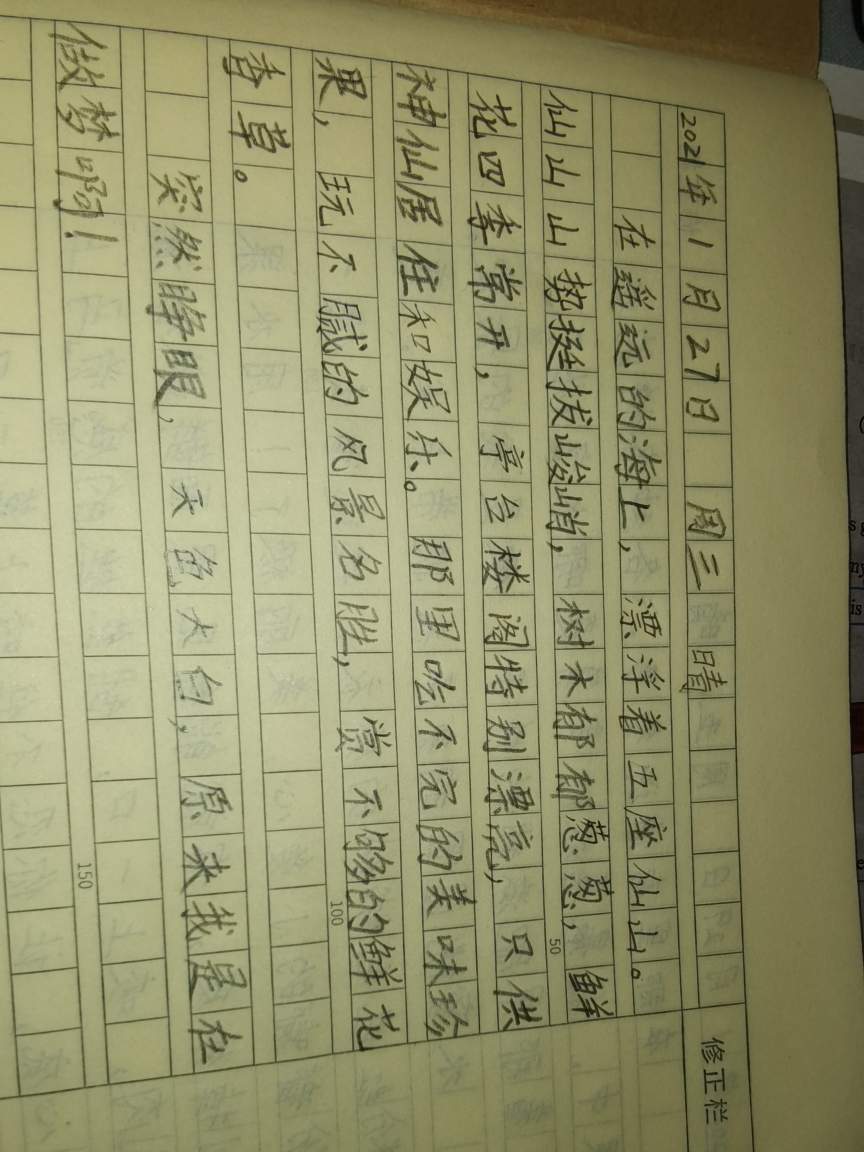 2021年1月27日 周三 晴
在遥远的海上,漂浮着五座仙山。
仙山山势挺拔峻峭,树木郁郁葱葱,鲜
花四季常开,亭台楼阁特别漂亮,只供
神仙居住和娱乐。那里吃不完的美味珍
果,玩不腻的风景名胜,赏不够的鲜花
香草。
突然睁眼,天色大白,原来我是在
做梦啊!
修正栏
50
100
150